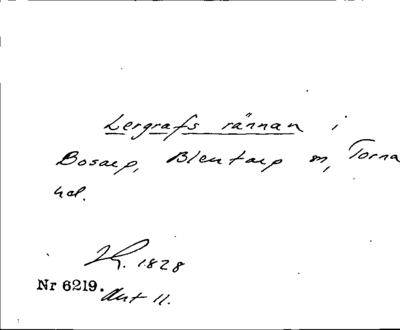 Lergrafs rännan i
Bosarp, Blentarp sn, Torna
hd.
1828
Nr 6219.
Akt 11.